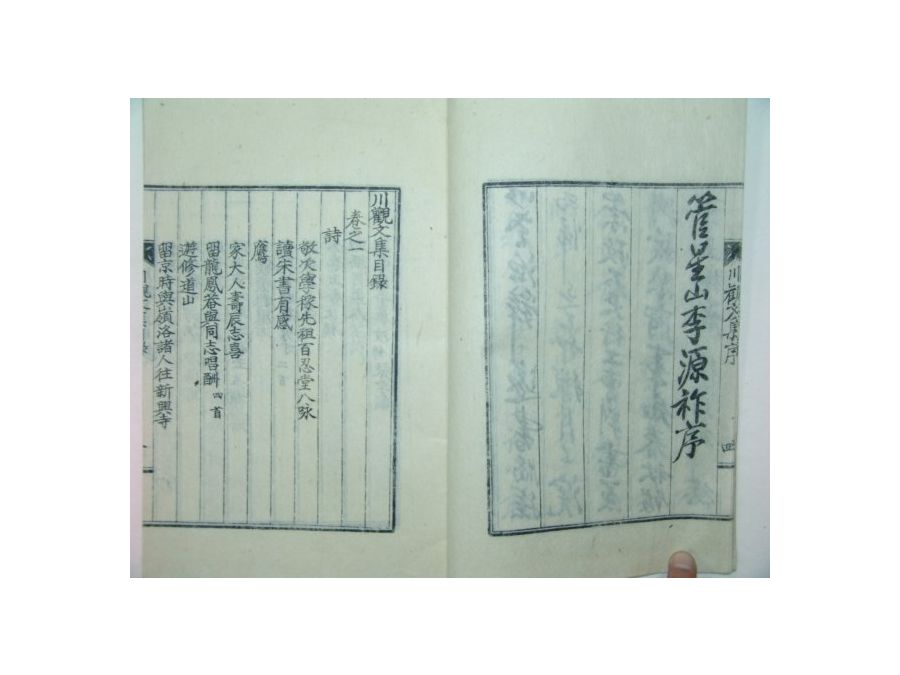 川觀文集序
四
管星山李源祚序
川觀文集目錄
卷之一
詩
敬次學稼先祖百忍堂八詠
讀宋書有感
鷹
家大人壽辰志喜
留龍鳳菴與同志唱酬 四首
遊修道山
留京時與嶺洛諸人往新興寺